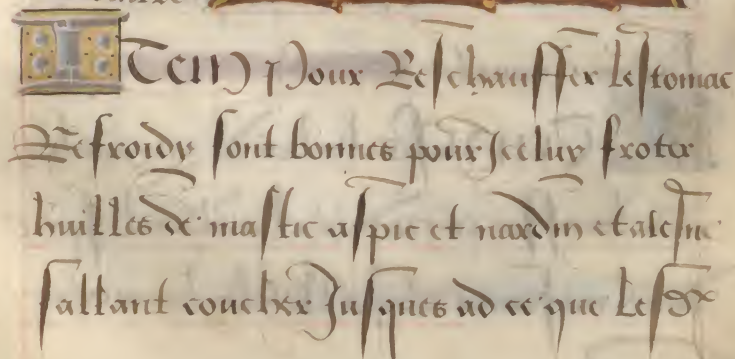 Item Pour Reschauffer lestomac
Refroidy sont bonnes pour Jceluy froter
huilles de mastic aspic et nardin et
sallant coucher Jusques ad ce que Les